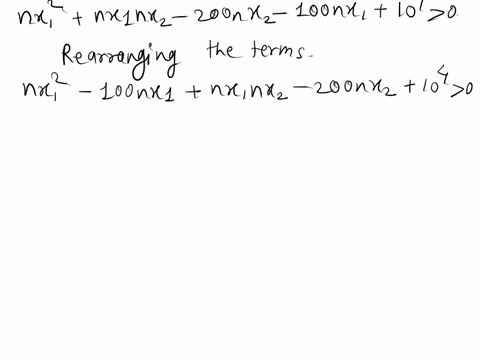 nx₁² + nx1nx₂ - 200nx₂ - 100nx₁ + 10 > 0
Rearranging the terms.
nx₁² - 100nx1 + nx₁nx₂ - 200nx₂ + 10⁴ > 0